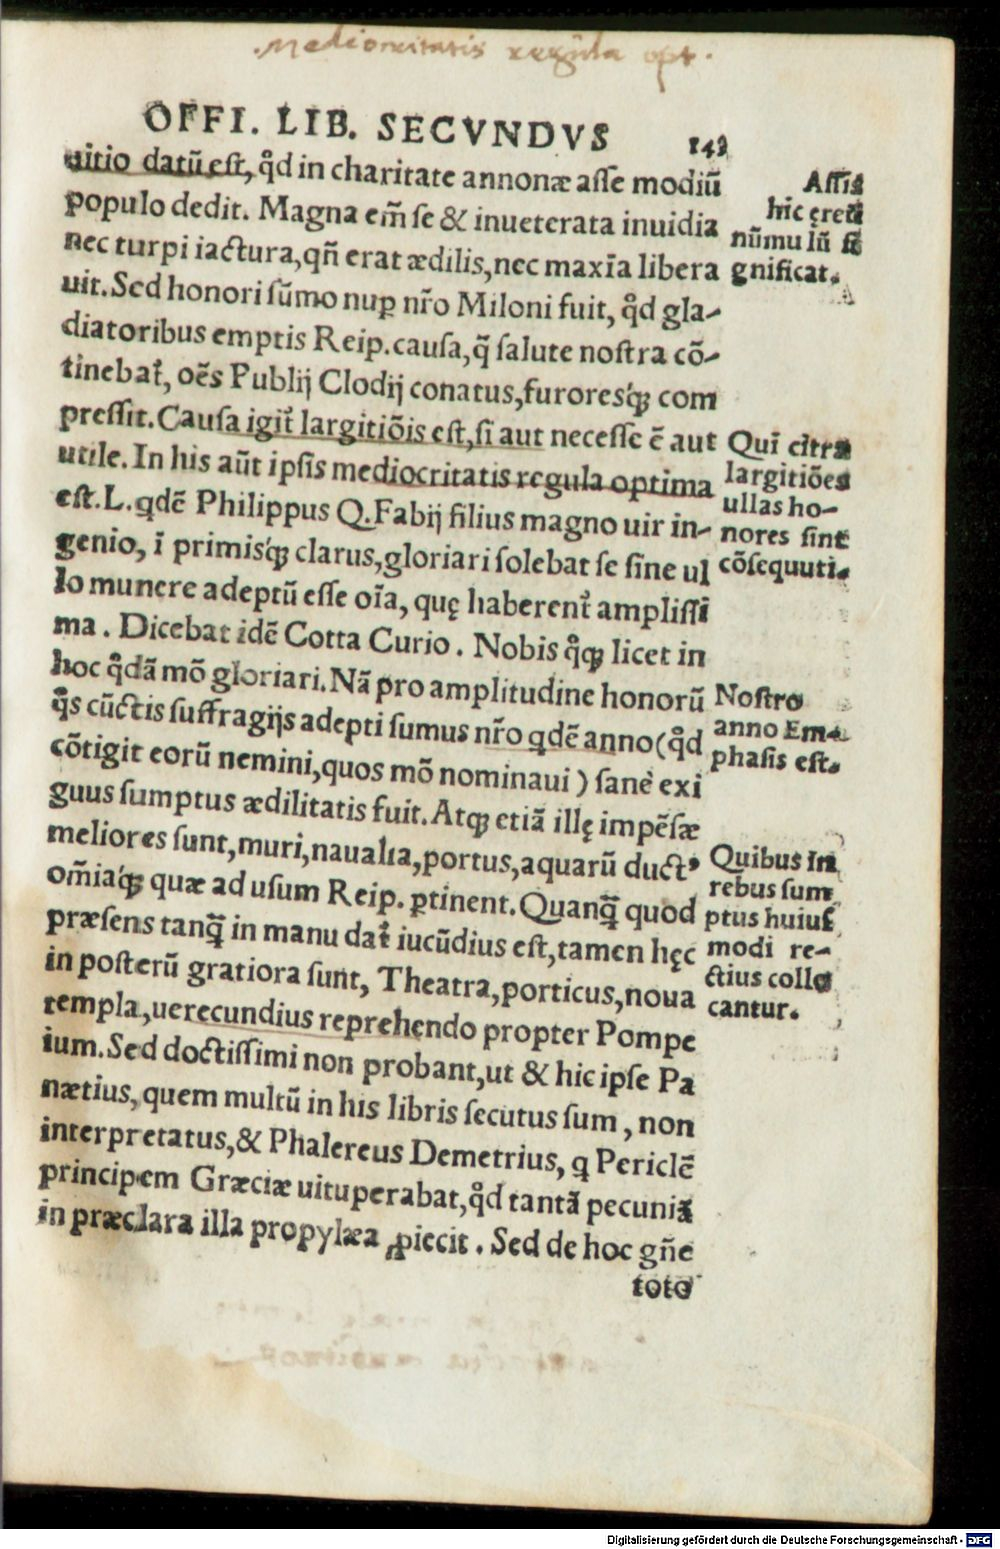 Mediocritatis regula opt.
OFFI. LIB. SECVNDVS 143
uitio datū est, qd̛ in charitate annonæ asse modiū
populo dedit. Magna em̄ se & inueterata inuidia
nec turpi iactura, qn̄ erat ædilis, nec maxīa libera
uit. Sed honori sūmo nuꝑ nr̄o Miloni fuit, qd̛ gla-
diatoribus emptis Reip. causa, q̄ salute nostra cō-
tinebat᷑, oēs Publij Clodij conatus, furoresq́ꝫ com
pressit. Causa igit᷑ largitiōis est, si aut necesse ē aut
utile. In his aūt ipsis mediocritatis regula optima
est. L. qdē Philippus Q. Fabij filius magno uir in-
genio, ī primisq́ꝫ clarus, gloriari solebat se sine ul
lo munere adeptū esse oīa, quę haberent᷑ amplissi
ma. Dicebat idē Cotta Curio. Nobis qͦqꝫ licet in
hoc qͦdā mō gloriari. Nā pro amplitudine honorū
qͦs cūctis suffragijs adepti sumus nr̄o qdē anno (qd̛
cōtigit eorū nemini, quos mō nominaui) sane exi
guus sumptus ædilitatis fuit. Atqꝫ etiā illę impēsæ
meliores sunt, muri, naualia, portus, aquarū ductꝰ
om̄iaq́ꝫ quæ ad usum Reip. ꝑtinent. Quanq̄ quod
præsens tanq̄ in manu dat᷑ iucūdius est, tamen hęc
in posterū gratiora sunt, Theatra, porticus, noua
templa, uerecundius reprehendo propter Pompe
ium. Sed doctissimi non probant, ut & hic ipse Pa
nætius, quem multū in his libris secutus sum, non
interpretatus, & Phalereus Demetrius, q Periclē
principem Græciæ uituperabat, qd̛ tantā pecuniā
in præclara illa propylæa ꝓiecit. Sed de hoc gn̄e
toto
Assis
hic ęreū
nūmulū si
gnificat.
Qui citra
largitiōes
ullas ho-
nores sint
cōsequuti.
Nostro
anno Em-
phasis est.
Quibus in
rebus sum
ptus huius
modi re-
ctius collo
cantur.
Digitalisierung gefördert durch die Deutsche Forschungsgemeinschaft - DFG